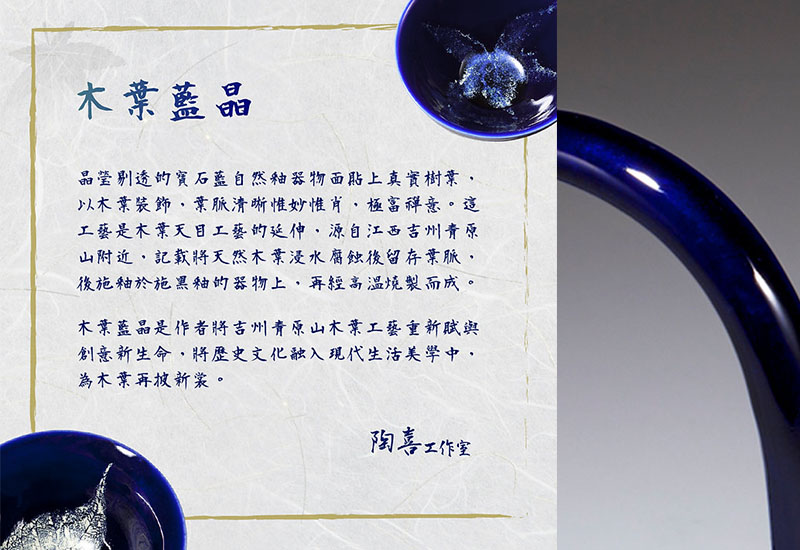 木葉藍晶
晶瑩剔透的寶石藍自然釉器物面貼上真實樹葉，
以木葉裝飾，葉脈清晰惟妙惟肖，極富禪意。這
工藝是木葉天目工藝的延伸，源自江西吉州青原
山附近，記載將天然木葉浸水腐蝕後留存葉脈，
後施釉於施黑釉的器物上，再經高溫燒製而成。
木葉藍晶是作者將吉州青原山木葉工藝重新賦與
創意新生命，將歷史文化融入現代生活美學中，
為木葉再披新裳。
陶喜工作室